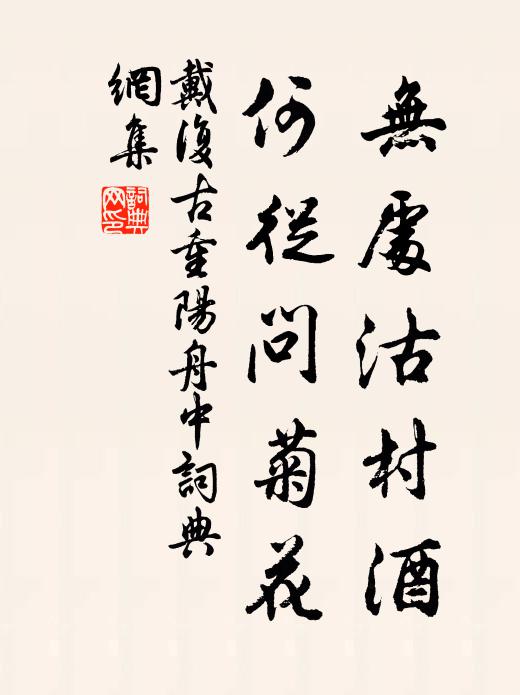 無處沽村酒
何從問菊花
戴復古重陽舟中詞典
網集
詞典
网印